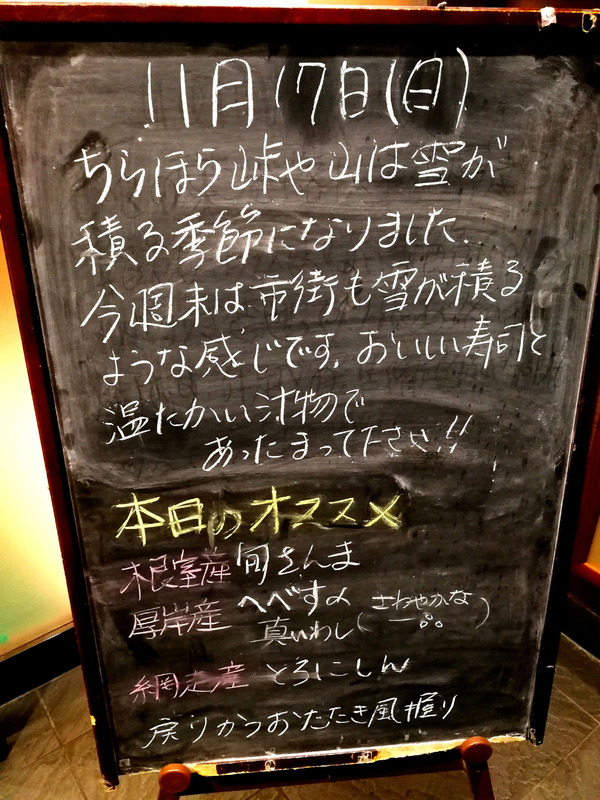 11月17日(日)
ちらほら峠や山は雪が
積る季節になりました..
今週末は市街も雪が積る
ような感じです。おいしい寿司と
温たかい汁物で
あったまって下させ!!
本日のオススメ
根室産 旬さんま
厚岸産 へべす〆
真いわし(さわやかな)
網走産 とろにしん
戻りかつおたたき風握り